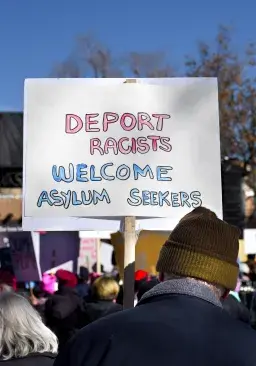 DEPORT
RACISTS
WELCOME
ASYLUM SEEKERS